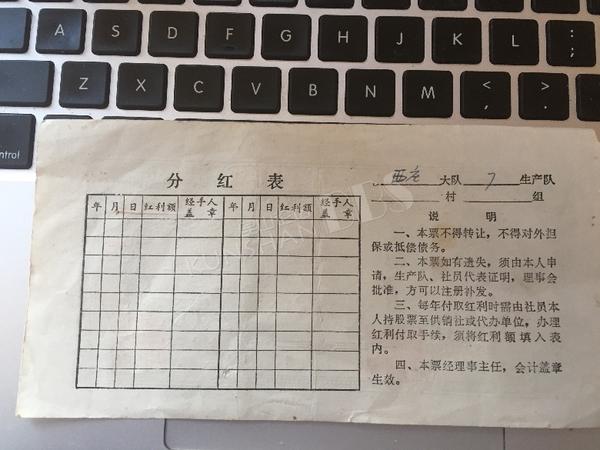 A S D F G H J K L : ;
Z X C V B N M < , > .
control
分红表
西㐂大队 7 生产队
村 组
年 月 日 红利额 经手人盖章 年 月 日 红利额 经手人盖章
说明
一、本票不得转让，不得对外担
保或抵偿债务。
二、本票如有遗失，须由本人申
请，生产队、社员代表证明，理事会
批准，方可以注册补发。
三、每年付取红利时需由社员本
人持股票至供销社或代办单位，办理
红利付取手续，须将红利额填入表
内。
四、本票经理事主任，会计盖章
生效。
KUNSHAN BBS